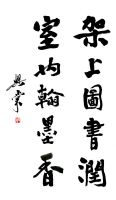 架上圖書潤
室內翰墨香